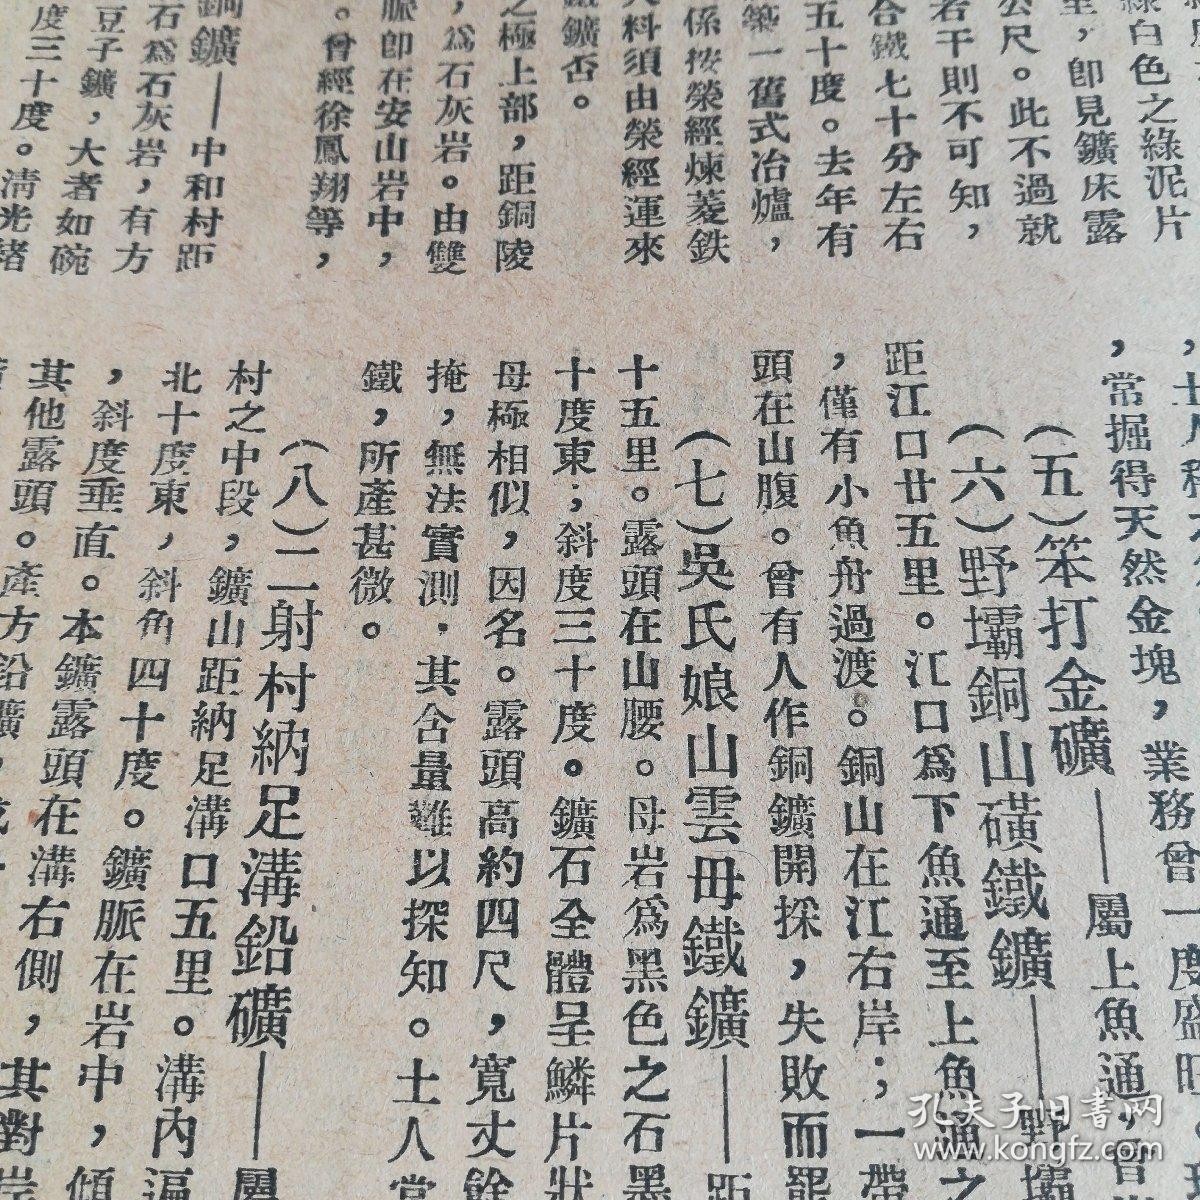 綠白色之綠泥片
里，卽見鑛床露
公尺。此不過就
若干則不可知，
合鐵七十分左右
五十度。去年有
築一舊式冶爐，
係按榮經煉菱鉄
料須由榮經運來
鐵鑛否。
之極上部，距銅陵
，爲石灰岩。由雙
脈卽在安山岩中，
。曾經徐鳳翔等，
銅鑛——中和村距
石爲石灰岩，有方
豆子鑛，大者如碗
度三十度。淸光緖
，常掘得天然金塊，業務曾一度盛旺。
（五）笨打金礦——屬上魚通，曾
（六）野壩銅山磺鐵鑛——野壩
距江口廿五里。江口爲下魚通至上魚通之
，僅有小魚舟過渡。銅山在江右岸；一帶
頭在山腹。曾有人作銅鑛開採，失敗而罷
（七）吳氏娘山雲母鐵鑛——距
十五里。露頭在山腰。母岩爲黑色之石墨
十度東；斜度三十度。鑛石全體呈鱗片狀
母極相似，因名。露頭高約四尺，寬丈餘
掩，無法實測．其含量難以探知。土人常
鐵，所產甚微。
（八）二射村納足溝鉛礦——屬
村之中段，鑛山距納足溝口五里。溝內逼
北十度東，斜角四十度。鑛脈在岩中，傾
，斜度垂直。本鑛露頭在溝右側，其對岸
其他露頭。產方鉛鑛，成
孔夫子旧书网
www.kongfz.com